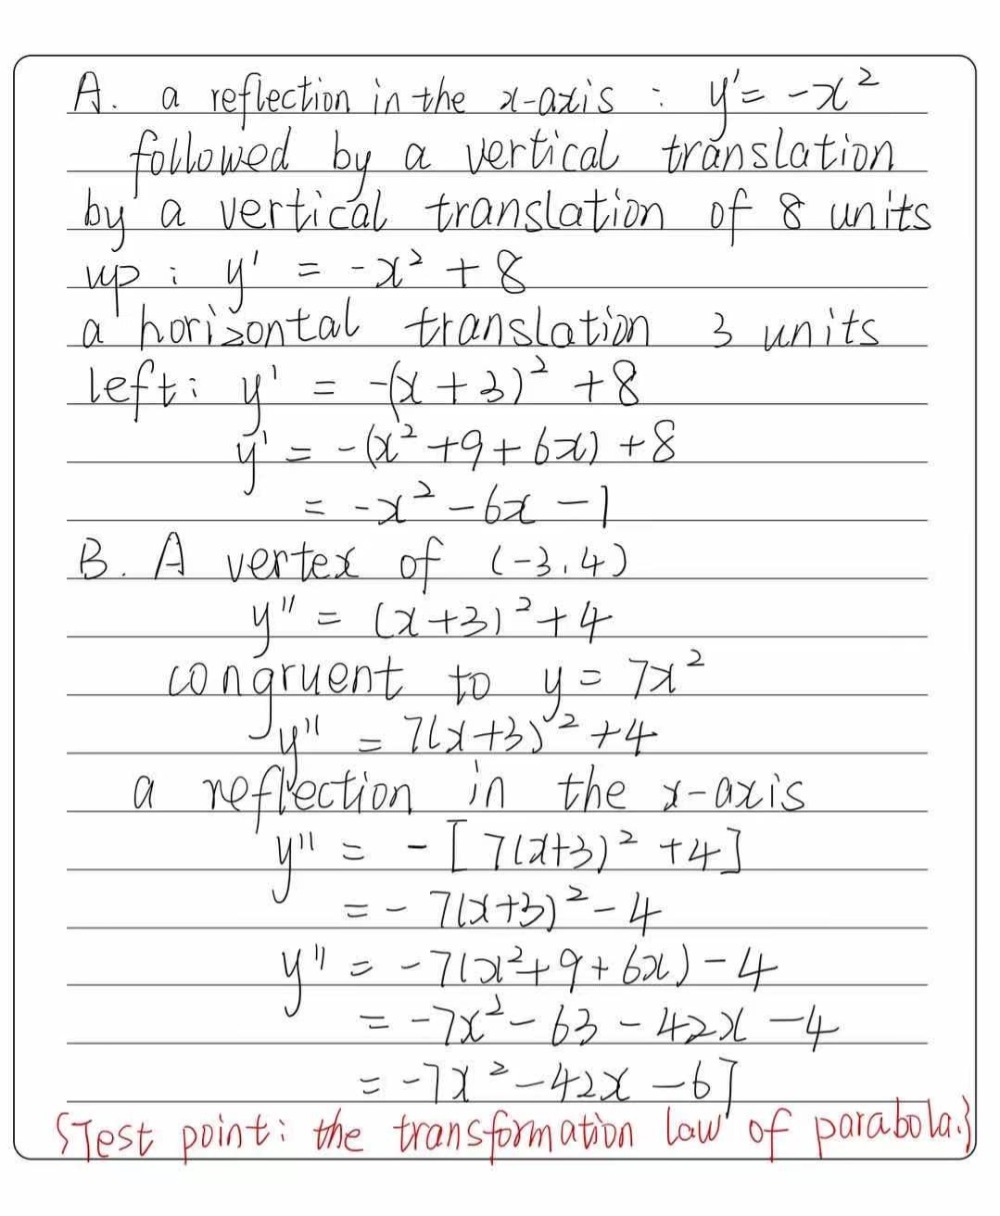 A. a reflection in the x-axis : y' = -x²
followed by a vertical translation
by a vertical translation of 8 units
up : y' = -x² + 8
a horizontal translation 3 units
left : y' = -(x + 3)² + 8
y' = -(x² + 9 + 6x) + 8
= -x² - 6x - 1
B. A vertex of (-3, 4)
y'' = (x+3)² + 4
congruent to y = 7x²
y'' = 7(x+3)² + 4
a reflection in the x-axis
y'' = - [ 7(x+3)² + 4 ]
= - 7(x+3)² - 4
y'' = -7(x² + 9 + 6x) - 4
= -7x² - 63 - 42x - 4
= -7x² - 42x - 67
{Test point: the transformation law of parabola.}